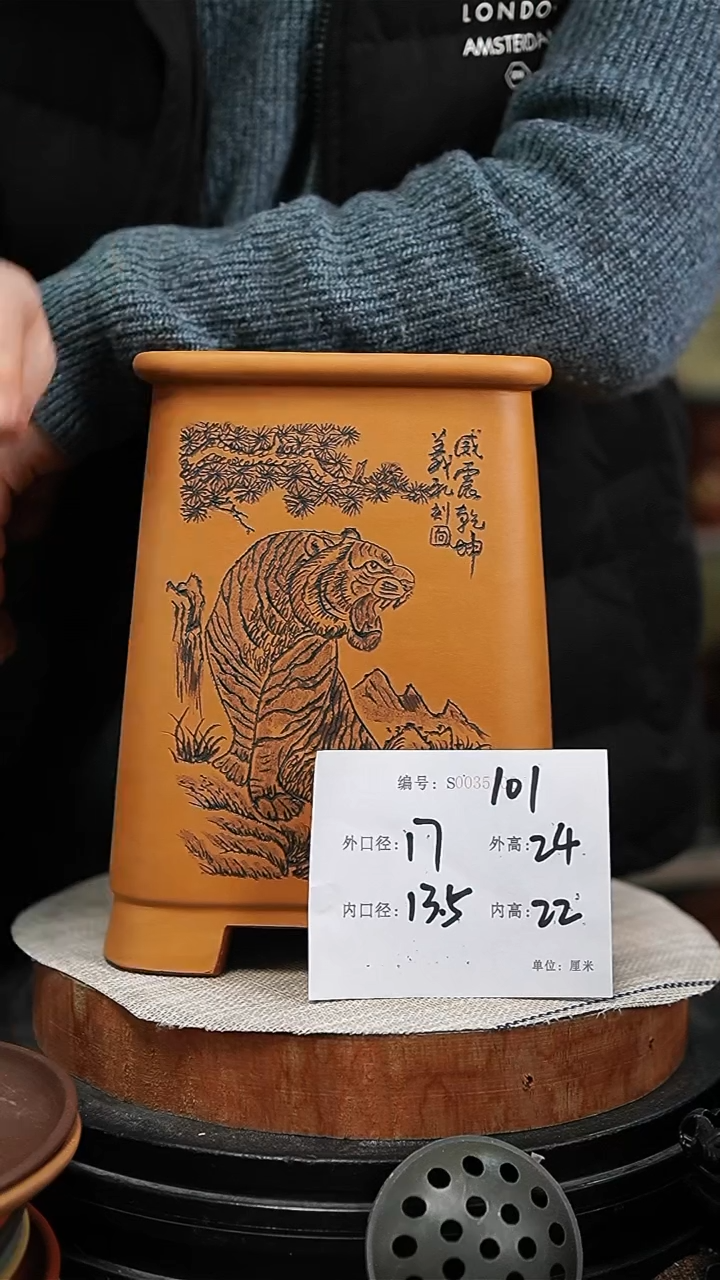 LONDO
AMSTERDA
威震乾坤
義孔刻
编号：S0035 101
外口径：17 外高：24
内口径：13.5 内高：22
单位：厘米